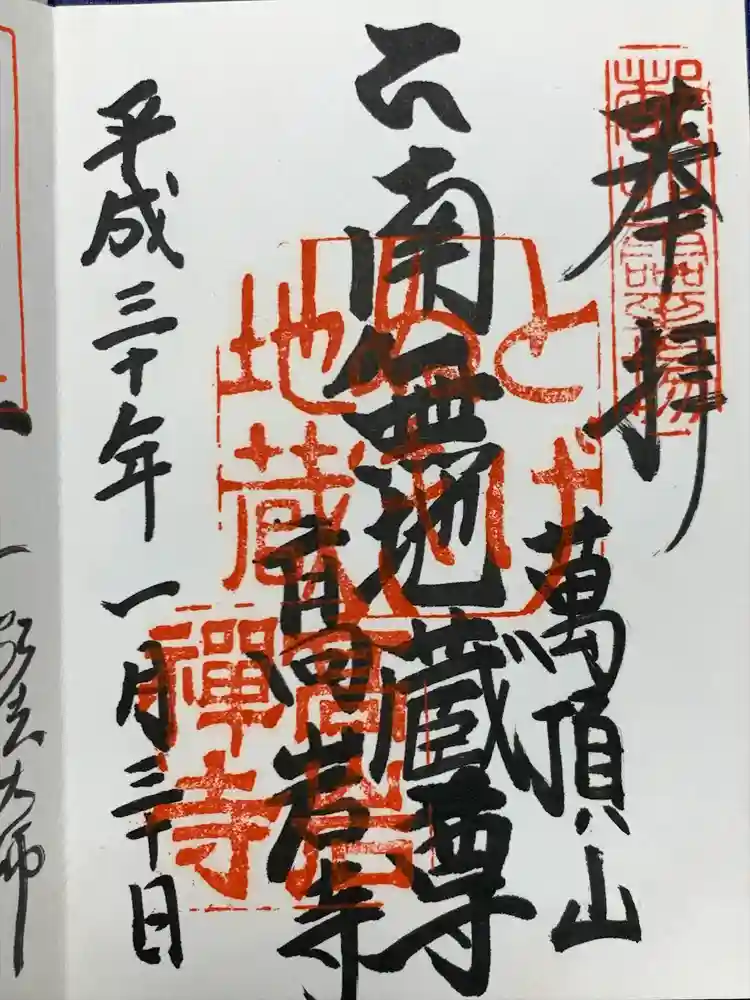 奉拝
萬頂山
南無地蔵尊
高岩寺
平成三十年一月三十日
とげぬき
地蔵
高岩
禅寺
弘法大師